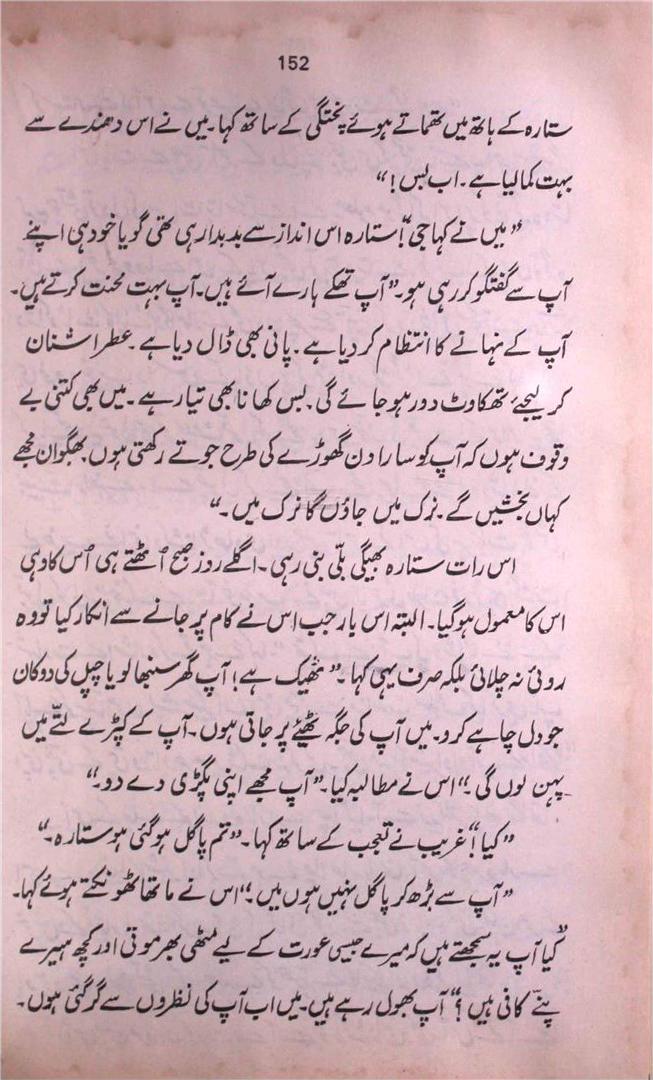 152
ستارہ کے ہاتھ میں تھماتے ہوئے پختگی کے ساتھ کہا۔ میں نے اس دھندے سے
بہت کمالیا ہے۔ اب بس! “
” میں نے کہا جی “! ستارہ اس انداز سے بدبدا رہی تھی گویا خود ہی اپنے
آپ سے گفتگو کر رہی ہو۔ ” آپ تھکے ہارے آئے ہیں۔ آپ بہت محنت کرتے ہیں۔
آپ کے نہانے کا انتظام کر دیا ہے۔ پانی بھی ڈال دیا ہے۔ عطر اشنان
کر لیجئے تھکاوٹ دور ہو جائے گی۔ بس کھانا بھی تیار ہے۔ میں بھی کتنی بے
وقوف ہوں کہ آپ کو سارا دن گھوڑے کی طرح جوتے رکھتی ہوں۔ بھگوان مجھے
کہاں بخشیں گے۔ نرک میں جاؤں گا نرک میں۔ “
اس رات ستارہ بھیگی بلّی بنی رہی۔ اگلے روز صبح اُٹھتے ہی اُس کا وہی
اس کا معمول ہو گیا۔ البتہ اس بار جب اس نے کام پر جانے سے انکار کیا تو وہ
روئی نہ چلائی بلکہ صرف یہی کہا۔ ” ٹھیک ہے! آپ گھر سنبھالو یا چپل کی دوکان
جو دل چاہے کرو۔ میں آپ کی جگہ ٹھیئے پر جاتی ہوں۔ آپ کے کپڑے لتّے میں
پہن لوں گی۔ “ اس نے مطالبہ کیا۔ ” آپ مجھے اپنی پگڑی دے دو۔ “
” کیا! “ غریب نے تعجب کے ساتھ کہا۔ ” تم پاگل ہو گئی ہو ستارہ۔ “
” آپ سے بڑھ کر پاگل نہیں ہوں میں۔ “ اس نے ماتھا ٹھونکتے ہوئے کہا۔
” کیا آپ یہ سمجھتے ہیں کہ میرے جیسی عورت کے لیے مٹھی بھر موتی اور کچھ ہیرے
پنّے کافی ہیں؟ “ آپ بھول رہے ہیں۔ میں اب آپ کی نظروں سے گر گئی ہوں۔